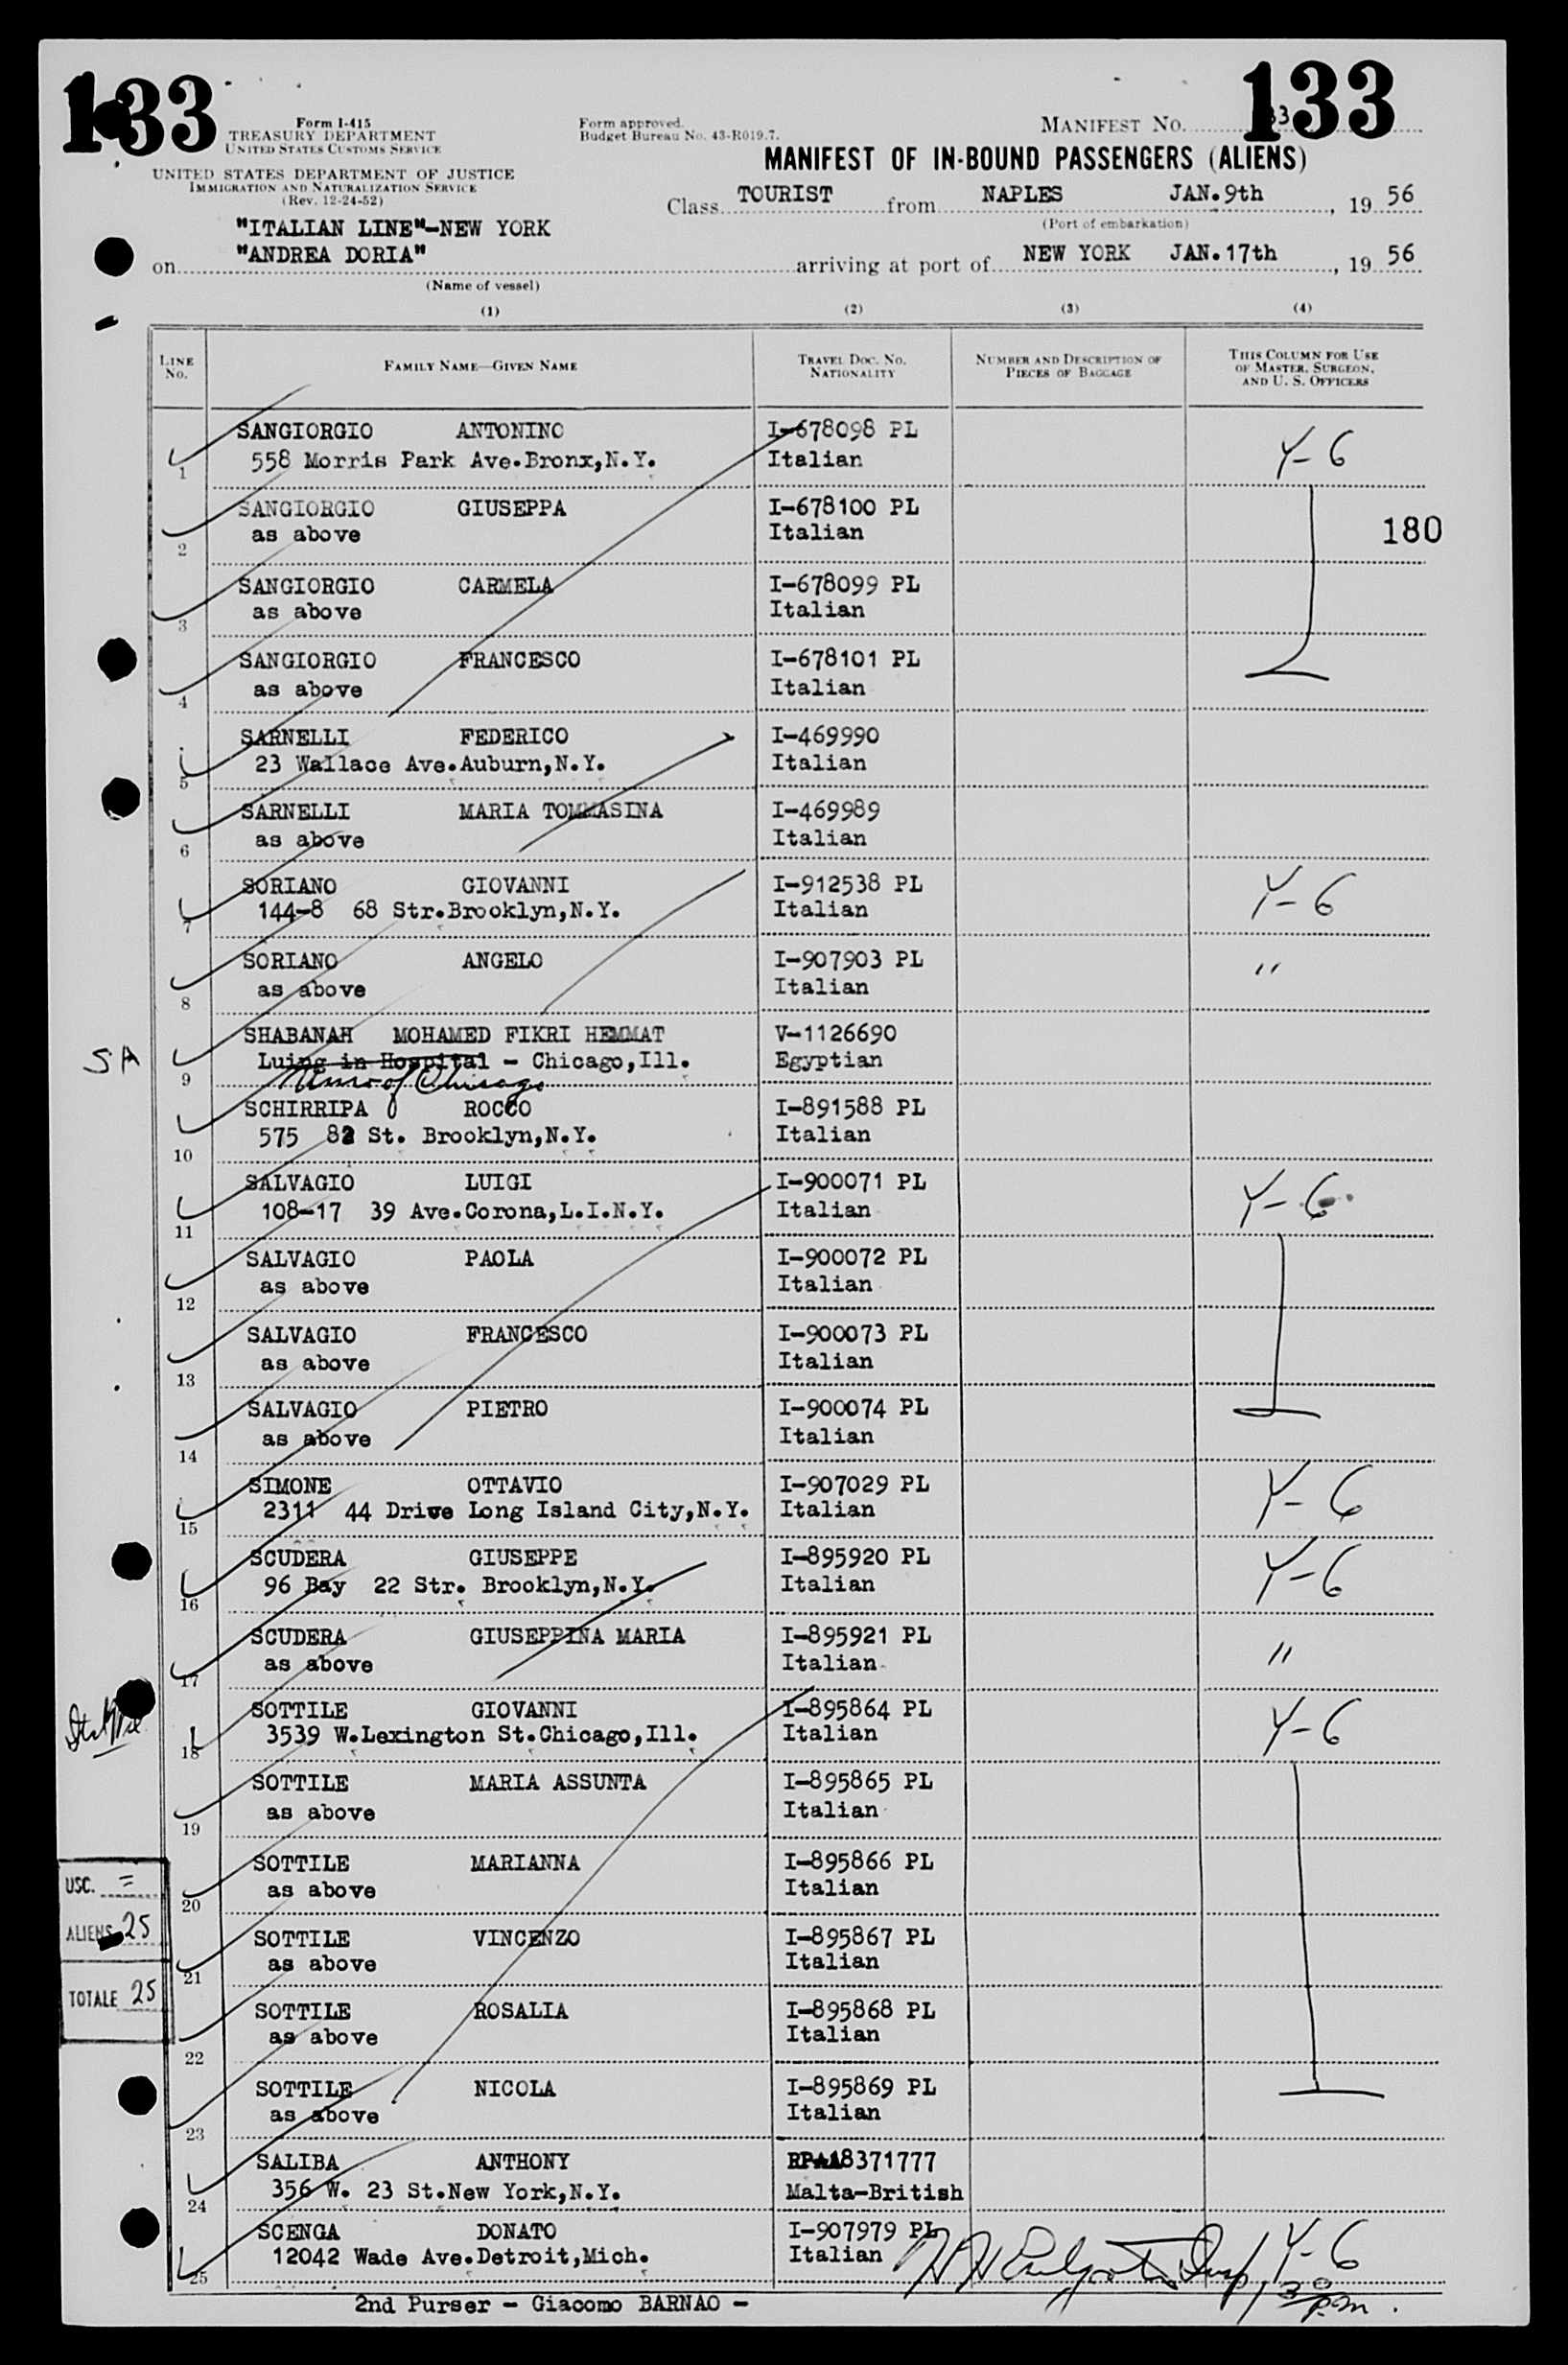 133
133
Form I-415
TREASURY DEPARTMENT
UNITED STATES CUSTOMS SERVICE
Form approved.
Budget Bureau No. 43-R019.7.
MANIFEST NO.
UNITED STATES DEPARTMENT OF JUSTICE
IMMIGRATION AND NATURALIZATION SERVICE
(Rev. 12-24-52)
MANIFEST OF IN-BOUND PASSENGERS (ALIENS)
Class TOURIST from NAPLES JAN.9th, 19 56
(Port of embarkation)
"ITALIAN LINE"-NEW YORK
on "ANDREA DORIA" arriving at port of NEW YORK JAN.17th, 19 56
(Name of vessel)
(1) (2) (3) (4)
LINE NO. FAMILY NAME—GIVEN NAME TRAVEL DOC. NO. NATIONALITY NUMBER AND DESCRIPTION OF PIECES OF BAGGAGE THIS COLUMN FOR USE OF MASTER, SURGEON, AND U. S. OFFICERS
SANGIORGIO ANTONINO I-678098 PL
1 558 Morris Park Ave.Bronx,N.Y. Italian Y-6
SANGIORGIO GIUSEPPA I-678100 PL
2 as above Italian 180
SANGIORGIO CARMELA I-678099 PL
3 as above Italian
SANGIORGIO FRANCESCO I-678101 PL
4 as above Italian
SARNELLI FEDERICO I-469990
5 23 Wallace Ave.Auburn,N.Y. Italian
SARNELLI MARIA TOMMASINA I-469989
6 as above Italian
SORIANO GIOVANNI I-912538 PL
7 144-8 68 Str.Brooklyn,N.Y. Italian Y-6
SORIANO ANGELO I-907903 PL
8 as above Italian "
SHABANAH MOHAMED FIKRI HEMMAT V-1126690
SA 9 Luing in Hospital - Chicago,Ill. Egyptian
Univ of Chicago
SCHIRRIPA ROCCO I-891588 PL
10 575 82 St. Brooklyn,N.Y. Italian
SALVAGIO LUIGI I-900071 PL
11 108-17 39 Ave.Corona,L.I.N.Y. Italian Y-6
SALVAGIO PAOLA I-900072 PL
12 as above Italian
SALVAGIO FRANCESCO I-900073 PL
13 as above Italian
SALVAGIO PIETRO I-900074 PL
14 as above Italian
SIMONE OTTAVIO I-907029 PL
15 2311 44 Drive Long Island City,N.Y. Italian Y-6
SCUDERA GIUSEPPE I-895920 PL
16 96 Bay 22 Str. Brooklyn,N.Y. Italian Y-6
SCUDERA GIUSEPPINA MARIA I-895921 PL
17 as above Italian "
SOTTILE GIOVANNI I-895864 PL
18 3539 W.Lexington St.Chicago,Ill. Italian Y-6
SOTTILE MARIA ASSUNTA I-895865 PL
19 as above Italian
SOTTILE MARIANNA I-895866 PL
20 as above Italian
USC. =
ALIENS 25
TOTALE 25
SOTTILE VINCENZO I-895867 PL
21 as above Italian
SOTTILE ROSALIA I-895868 PL
22 as above Italian
SOTTILE NICOLA I-895869 PL
23 as above Italian
SALIBA ANTHONY 8371777
24 356 W. 23 St.New York,N.Y. Malta-British
SCENGA DONATO I-907979 PL
25 12042 Wade Ave.Detroit,Mich. Italian Y-6
2nd Purser - Giacomo BARNAO -